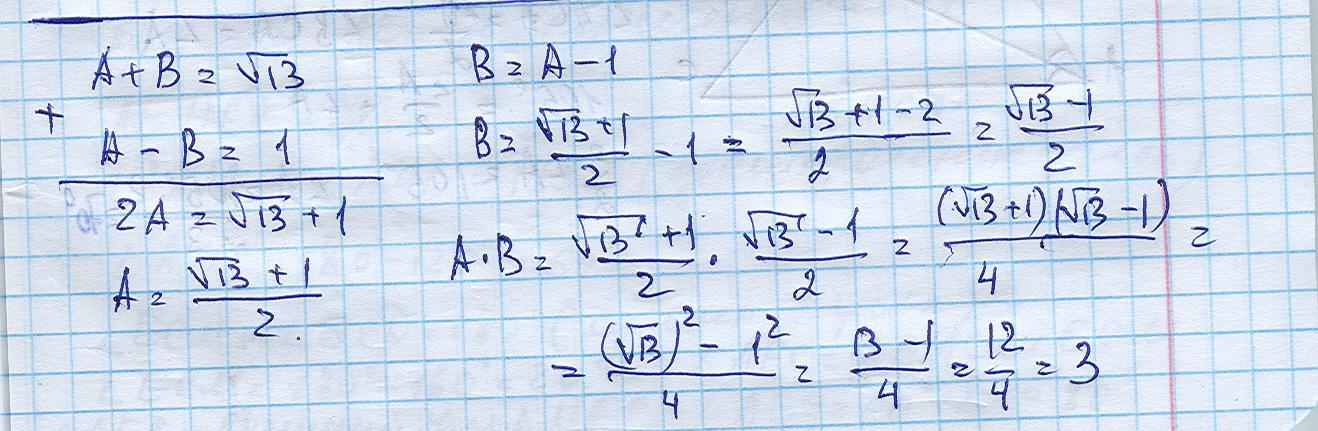 A + B = √13
+
A - B = 1
2A = √13 + 1
A = (√13 + 1)/2.
B = A - 1
B = (√13 + 1)/2 - 1 = (√13 + 1 - 2)/2 = (√13 - 1)/2
A · B = (√13 + 1)/2 · (√13 - 1)/2 = ((√13 + 1)(√13 - 1))/4 =
= ((√13)² - 1²)/4 = (13 - 1)/4 = 12/4 = 3